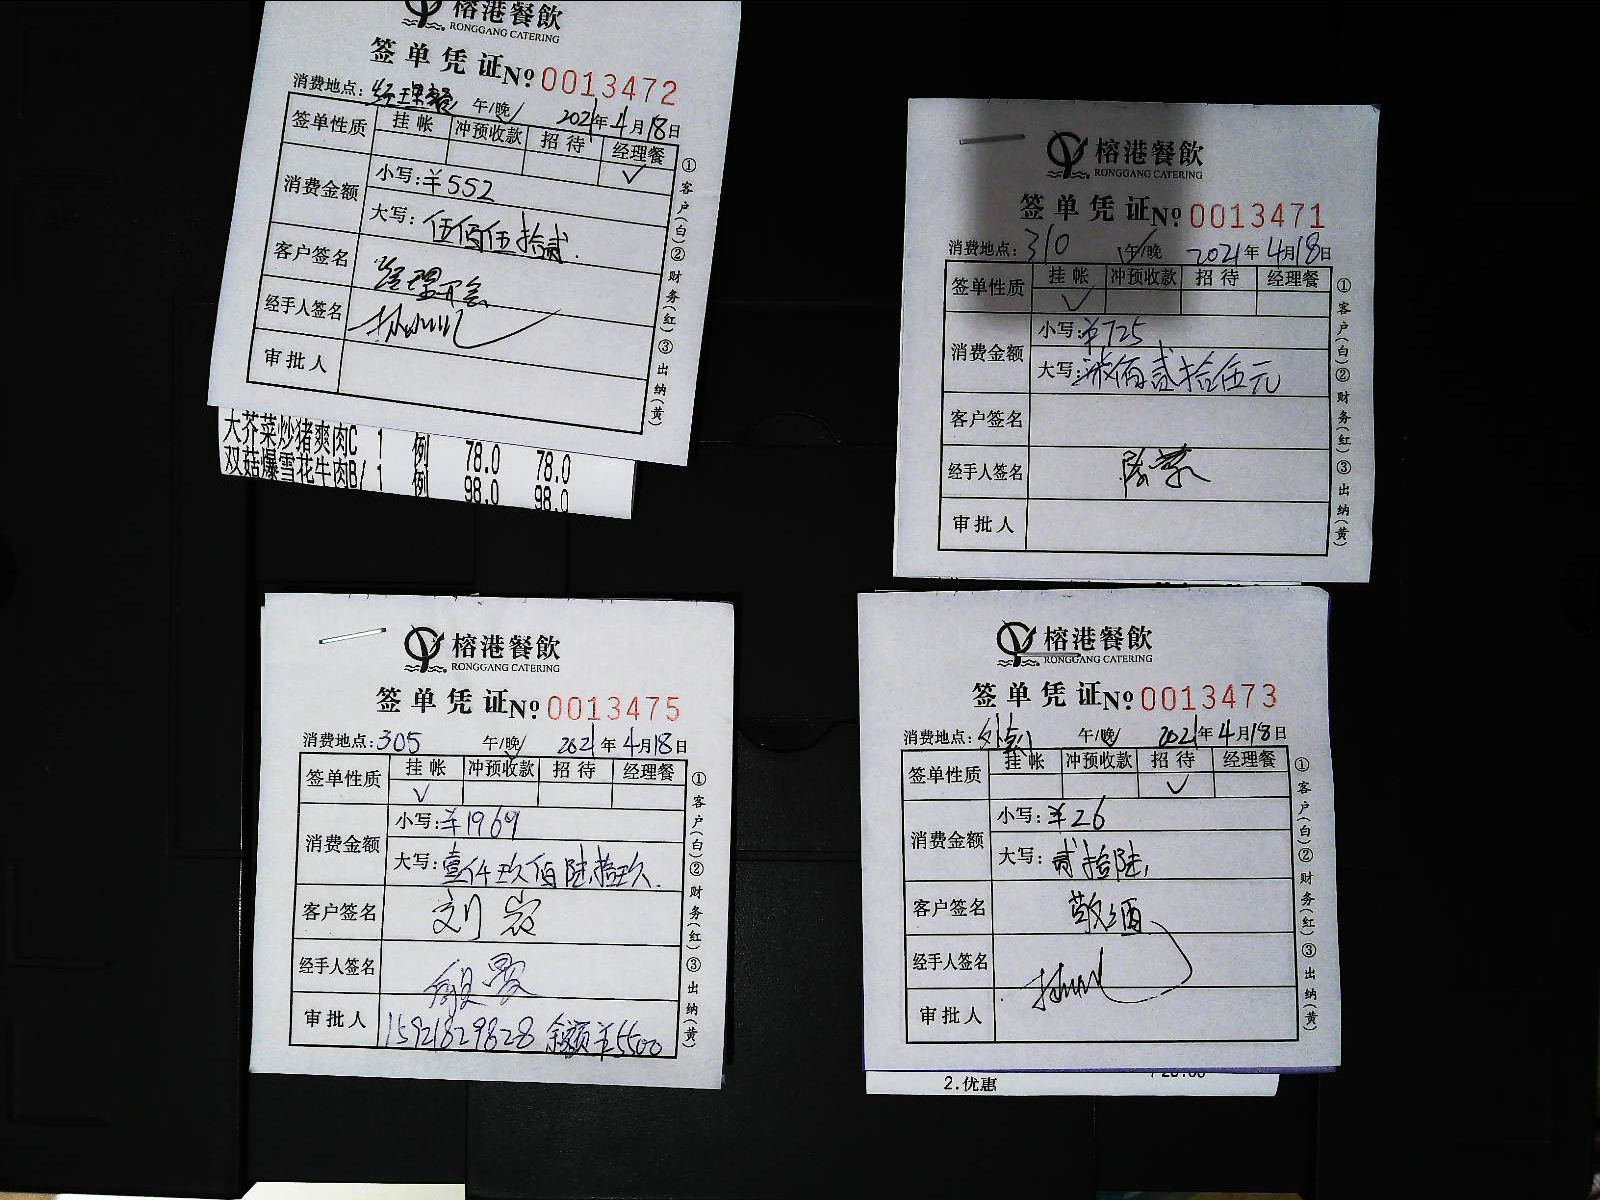 榕港餐飲
RONGGANG CATERING
签单凭证№0013472
消费地点:经理餐 午/晚 2021年4月18日
签单性质 挂帐 冲预收款 招待 经理餐
✓
消费金额 小写:¥552
大写:伍佰伍拾贰.
客户签名 经理开会
经手人签名
审批人
①客户(白)②财务(红)③出纳(黄)
大芥菜炒猪爽肉C 1 例 78.0 78.0
双菇爆雪花牛肉B/ 1 例 98.0 98.0
榕港餐飲
RONGGANG CATERING
签单凭证№0013471
消费地点:310 午/晚 2021年4月18日
签单性质 挂帐 冲预收款 招待 经理餐
✓
消费金额 小写:¥725
大写:柒佰贰拾伍元
客户签名
经手人签名
审批人
①客户(白)②财务(红)③出纳(黄)
榕港餐飲
RONGGANG CATERING
签单凭证№0013475
消费地点:305 午/晚 2021年4月18日
签单性质 挂帐 冲预收款 招待 经理餐
✓
消费金额 小写:¥1969
大写:壹仟玖佰陆拾玖.
客户签名 刘岩
经手人签名
审批人 15921829828 余额¥5500
①客户(白)②财务(红)③出纳(黄)
榕港餐飲
RONGGANG CATERING
签单凭证№0013473
消费地点:外卖 午/晚 2021年4月18日
签单性质 挂帐 冲预收款 招待 经理餐
✓
消费金额 小写:¥26
大写:贰拾陆
客户签名 敬酒
经手人签名
审批人
①客户(白)②财务(红)③出纳(黄)
2.优惠